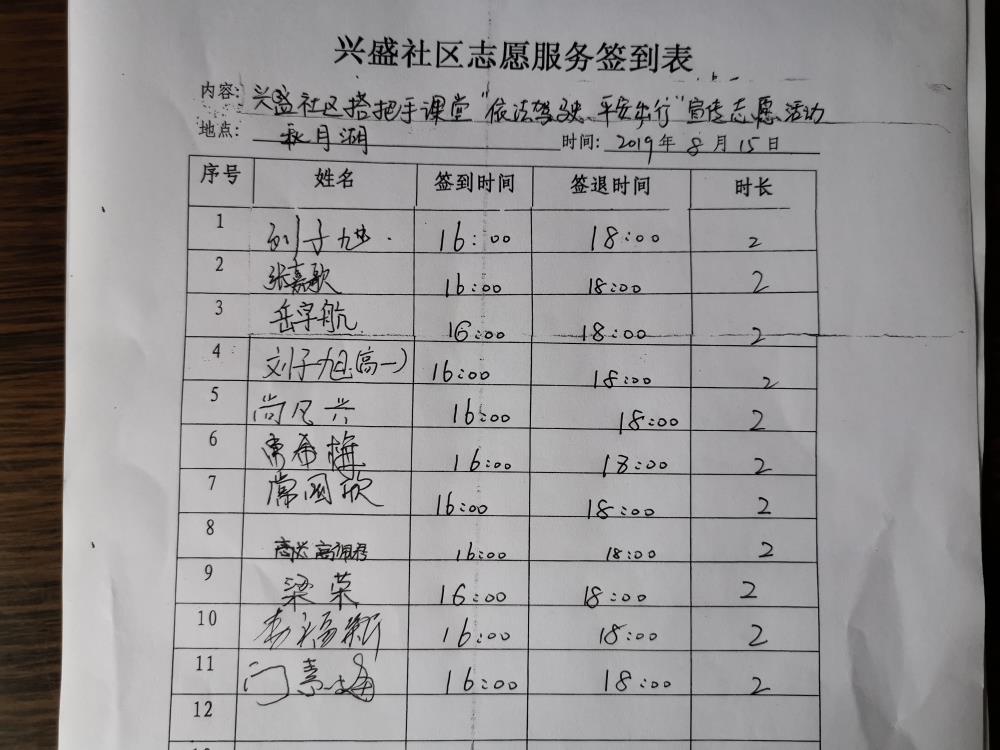 兴盛社区志愿服务签到表
内容: 兴盛社区搭把手课堂"依法驾驶、平安出行"宣传志愿活动
地点: 秋月湖 时间: 2019年8月15日
序号 姓名 签到时间 签退时间 时长
1 刘子旭 16:00 18:00 2
2 张嘉歌 16:00 18:00 2
3 岳宇航 16:00 18:00 2
4 刘子旭(高一) 16:00 18:00 2
5 尚凡兴 16:00 18:00 2
6 常希梅 16:00 18:00 2
7 常国欣 16:00 18:00 2
8 16:00 18:00 2
9 梁荣 16:00 18:00 2
10 李福新 16:00 18:00 2
11 门素梅 16:00 18:00 2
12